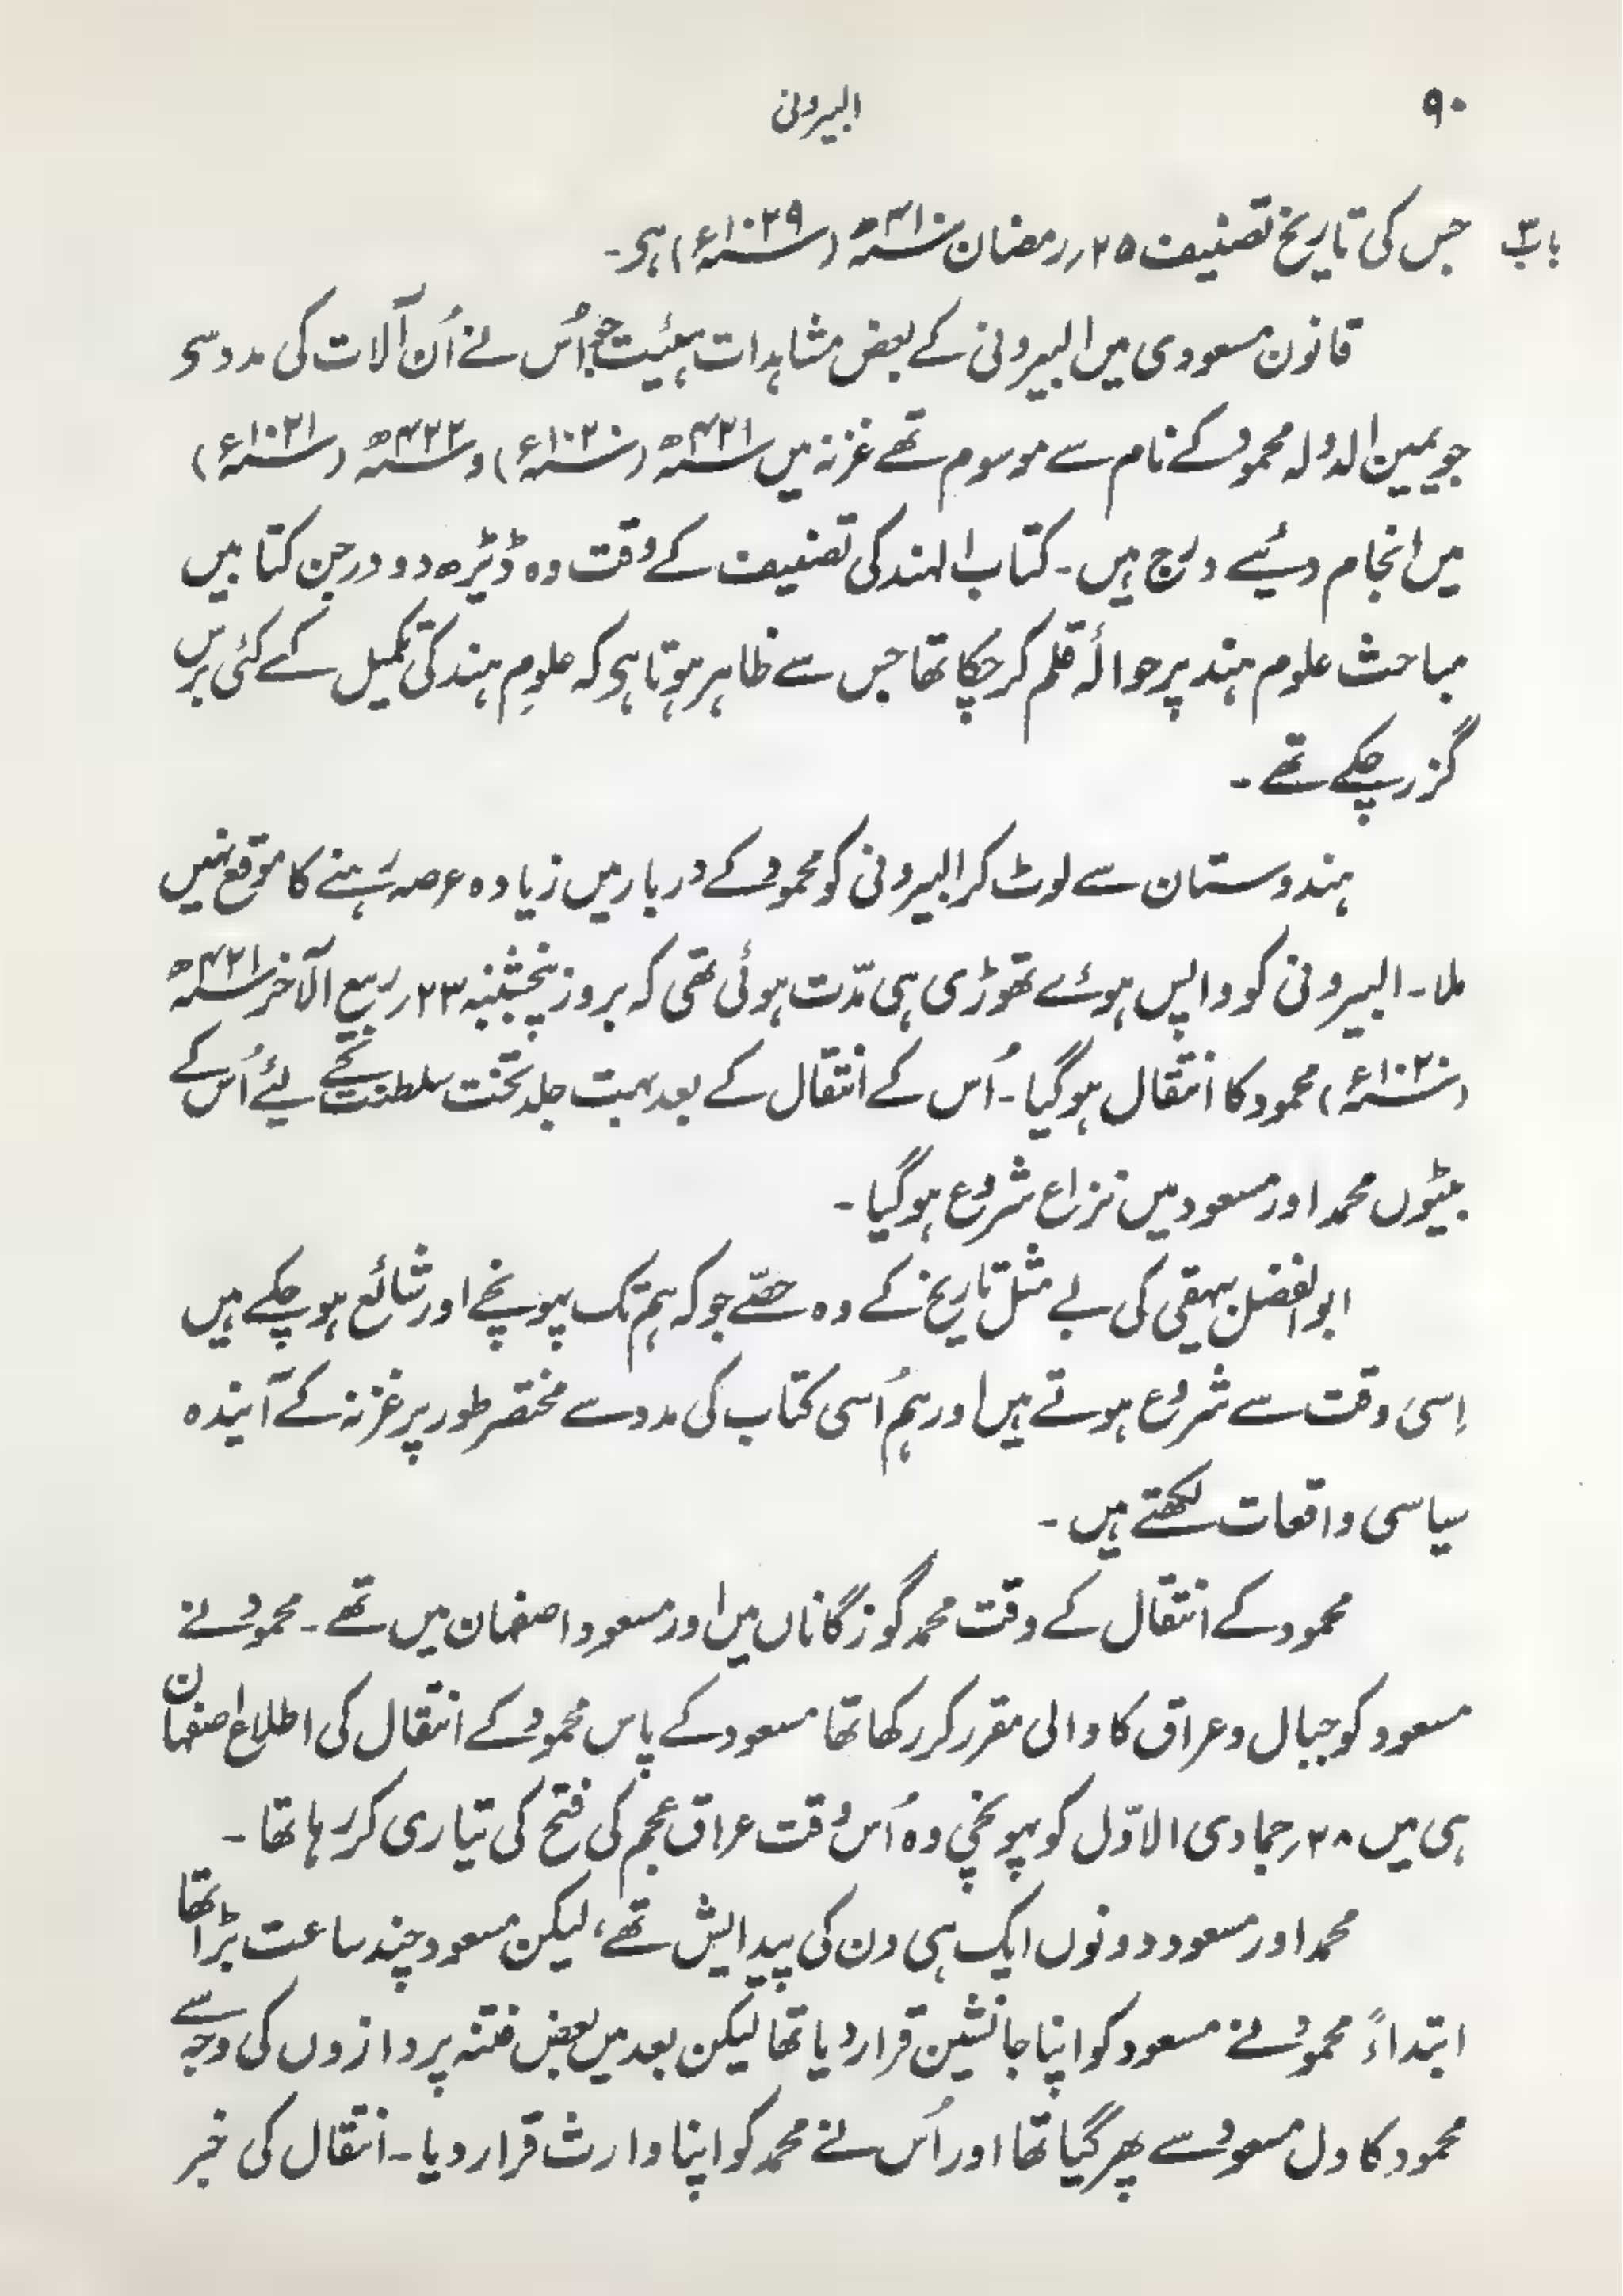 ۹۰
البیرونی
باب۳
جس کی تاریخ تصنیف ۲۵؍رمضان ۴۱۰ھ (۱۰۲۹ء) ہی۔
قانون مسعودی میں البیرونی کے بعض مشاہدات ہیئیت جو اُس نے اُن آلات کی مدد سی
جو یمین الدولہ محمود کے نام سے موسوم تھے غزنہ میں ۴۲۱ھ (۱۰۲۰ء) و ۴۲۲ھ (۱۰۲۱ء)
میں انجام دئیے درج ہیں۔ کتاب الہند کی تصنیف کے وقت وہ ڈیڑھ دو درجن کتابیں
مباحث علوم ہند پر حوالۂ قلم کر چکا تھا جس سے ظاہر ہوتا ہی کہ علومِ ہند کی تکمیل کے کئی برس
گزر چکے تھے۔
ہندوستان سے لوٹ کر البیرونی کو محمود کے دربار میں زیادہ عرصہ رہنے کا موقع نہیں
ملا۔ البیرونی کو واپس ہوئے تھوڑی ہی مدّت ہوئی تھی کہ بروز پنجشنبہ ۲۳؍ربیع الآخر ۴۲۱ھ
(۱۰۲۰ء) محمود کا انتقال ہوگیا۔ اُس کے انتقال کے بعد بہت جلد تخت سلطنت کے لیئے اُس کے
بیٹوں محمد اور مسعود میں نزاع شروع ہوگیا۔
ابوالفضل بیہقی کی بے مثل تاریخ کے وہ حصّے جو کہ ہم تک پہونچے اور شائع ہو چکے ہیں
اِسی وقت سے شروع ہوتے ہیں اور ہم اُسی کتاب کی مدد سے مختصر طور پر غزنہ کے آیندہ
سیاسی واقعات لکھتے ہیں۔
محمود کے انتقال کے وقت محمد گوزگاناں میں اور مسعود اصفہان میں تھے۔ محمود نے
مسعود کو جبال و عراق کا والی مقرر کر رکھا تھا مسعود کے پاس محمود کے انتقال کی اطلاع اصفہان
ہی میں ۲۸؍جمادی الاوّل کو پہونچی وہ اُس وقت عراق عجم کی فتح کی تیاری کر رہا تھا۔
محمد اور مسعود دونوں ایک ہی دن کی پیدایش تھے، لیکن مسعود چند ساعت بڑا تھا
ابتداءً محمود نے مسعود کو اپنا جانشین قرار دیا تھا لیکن بعد میں بعض فتنہ پردازوں کی وجہ سے
محمود کا دل مسعود سے پھر گیا تھا اور اُس نے محمد کو اپنا وارث قرار دیا۔ انتقال کی خبر